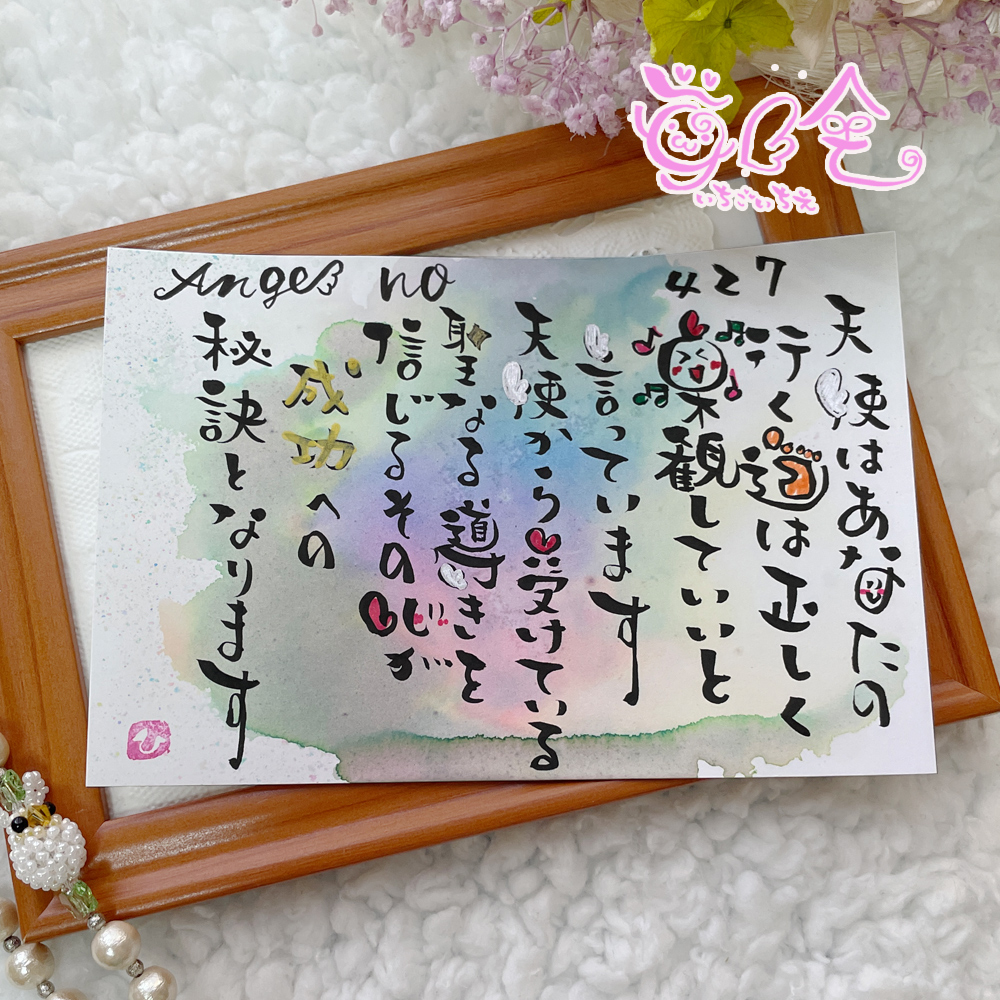 Angel no 427
天使はあなたの
行く道は正しく
楽観していいと
言っています
天使から受けている
聖なる導きを
信じるその心が
成功への
秘訣となります
いちごいちえ